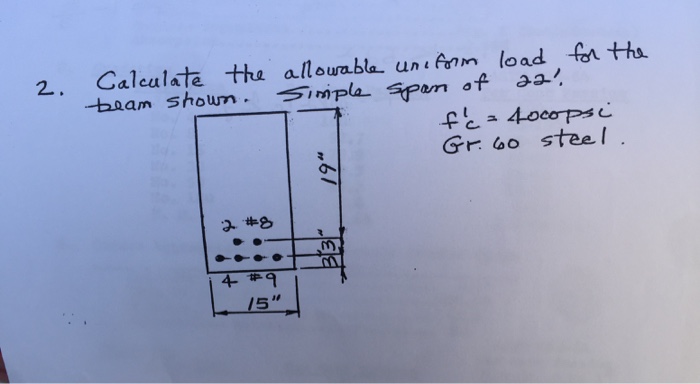 2. Calculate the allowable uniform load for the
beam shown. Simple span of 22'.
f'c = 4000psi
Gr. 60 steel.
19"
2 #8
3"
3"
4 #9
15"